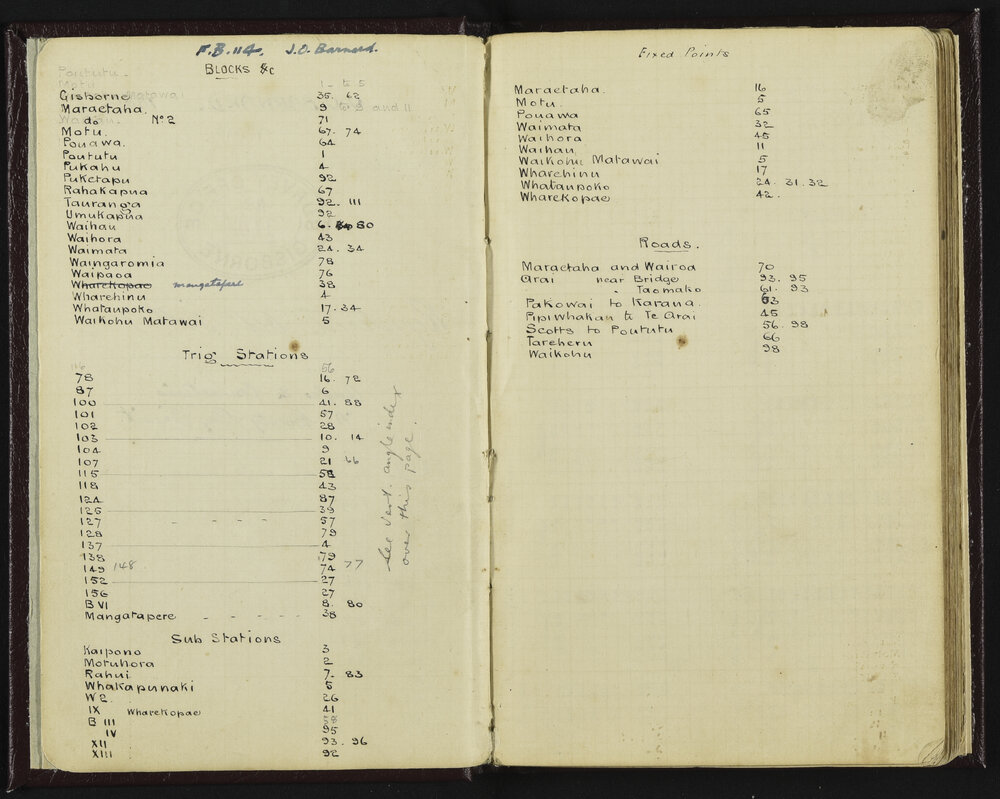 F.B. 114. J.O. Barnard.
BLOCKS &c
Poututu. 1 to 5
Motu
Gisborne 35. 62
Maraetaha. 9
do No 2 71
Motu. 67. 74
Pouawa. 64
Poututu 1
Pukahu 4
Puketapu 92
Rahakapua 67
Tauranga 92. 111
Umukapua 92
Waihau 6. 80
Waihora 43
Waimata 24. 34
Waingaromia 78
Waipaoa 76
Wharekopae mangatapere 38
Wharehinu 4
Whataupoko 17. 34
Waikohu Matawai 5
Trig Stations
116 56
78 16. 72
87 6
100 41. 88
101 57
102 28
103 10. 14
104 9
107 21 66
115 58
118 43
124 87
126 39
127 - - - - 57
128 79
137 4
138 79
149 148 74 77
152 27
156 27
B VI 8. 80
Mangatapere - - - - 38
Sub Stations
Kaipono 3
Motuhora 2
Rahui 7. 83
Whakapunaki 5
W2. 26
IX Wharekopae 41
B III 58
IV 95
XII 93. 96
XIII 92
See Vert. angle index
over this page.
Fixed Points
Maraetaha. 16
Motu. 5
Pouawa 65
Waimata 32
Waihora 45
Waihau 11
Waikohu Matawai 5
Wharehinu 17
Whataupoko 24. 31. 32
Wharekopae 42.
Roads.
Maraetaha and Wairoa 70
Arai near Bridge 93. 95
" Taomako 61. 93
Pakowai to Karaua. 63
Pipiwhakau to Te Arai 45
Scotts to Poututu 56. 98
Tareheru 66
Waikohu 98